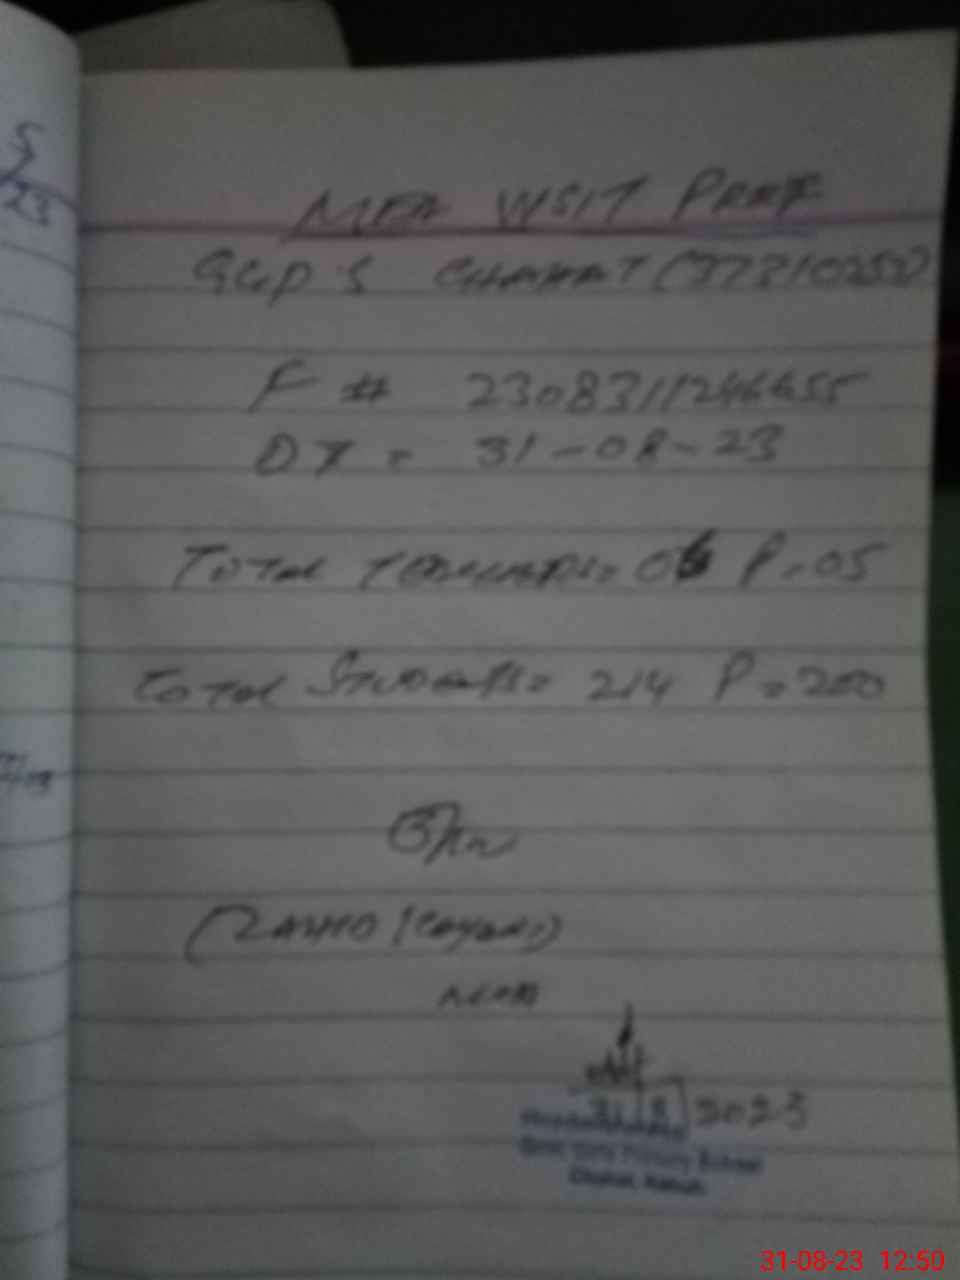 5
23
MEA VISIT PROOF
GGPS CHAHAT (37310252)
F # 2308311246655
DT = 31-08-23
TOTAL TEACHERS = 06 P = 05
TOTAL STUDENTS = 214 P = 200
(ZAHID
31/8/2023
Headmistress
Govt Girls Primary School
31-08-23 12:50